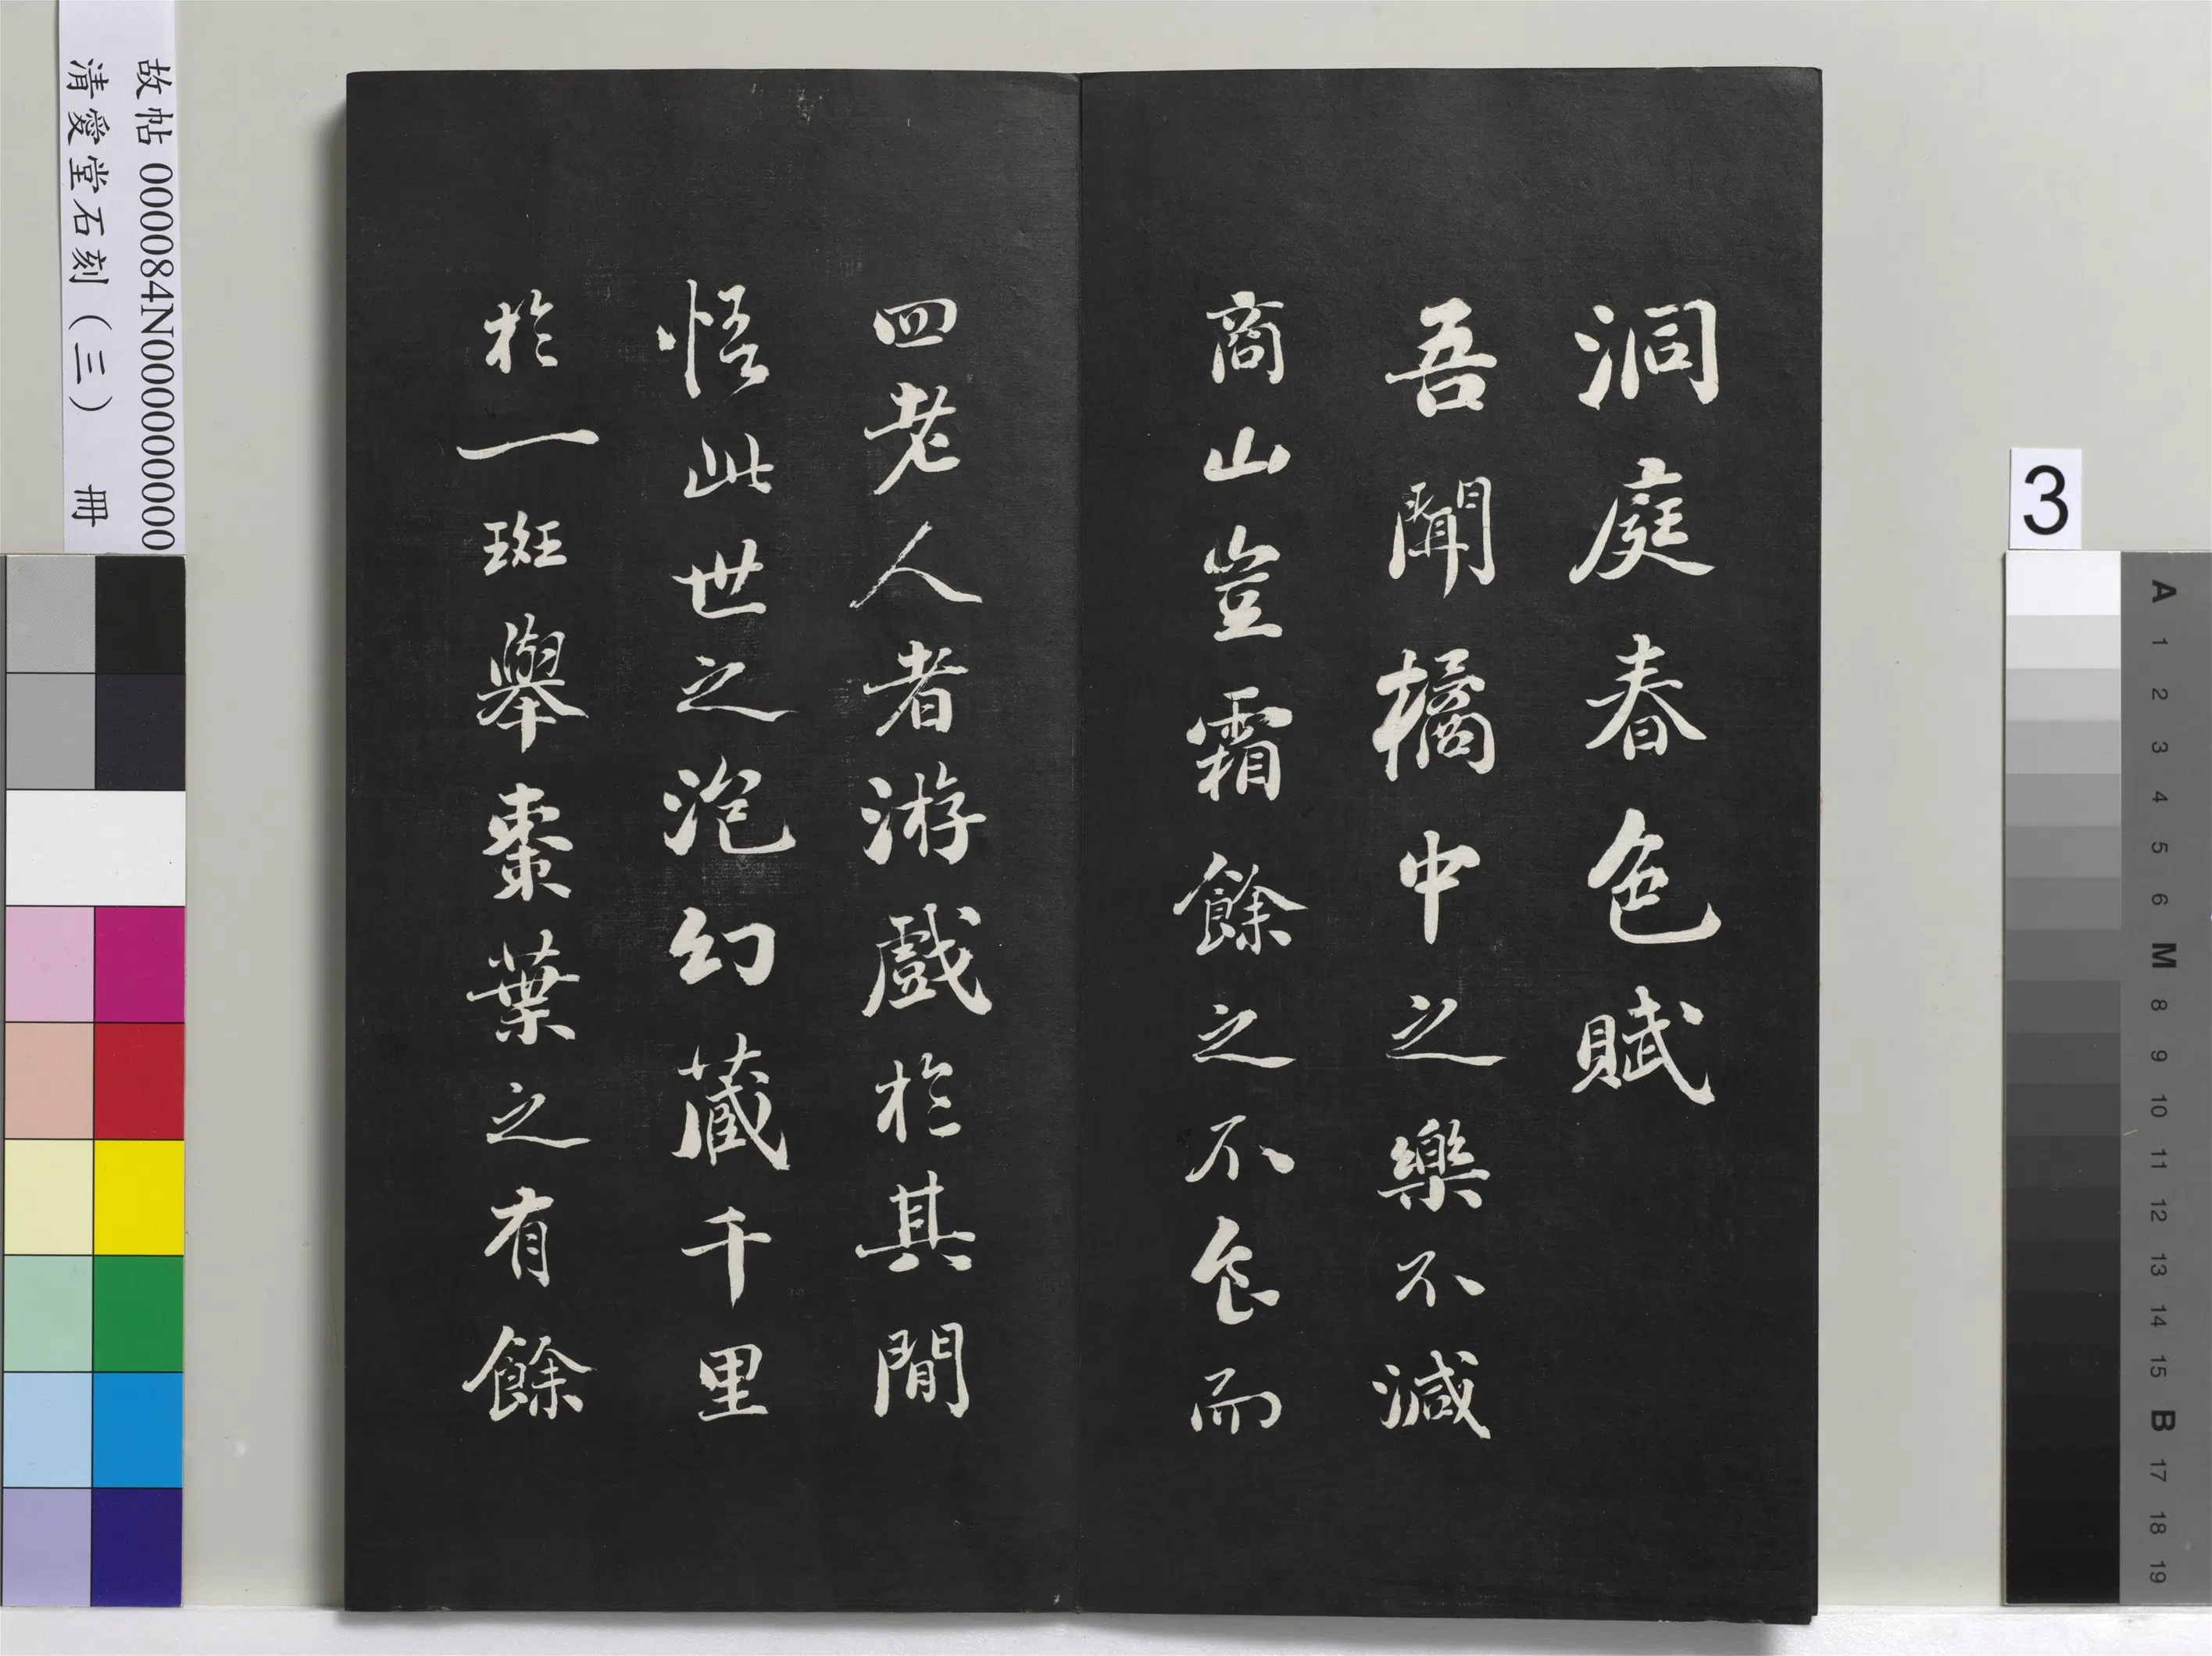 洞庭春色賦
吾聞橘中之樂不減
商山豈霜餘之不食而
四老人者游戲於其間
悟此世之泡幻藏千里
於一斑舉棗葉之有餘
故帖 000084N000000000
清愛堂石刻（三） 冊
3
A
1
2
3
4
5
6
M
8
9
10
11
12
13
14
15
B
17
18
19